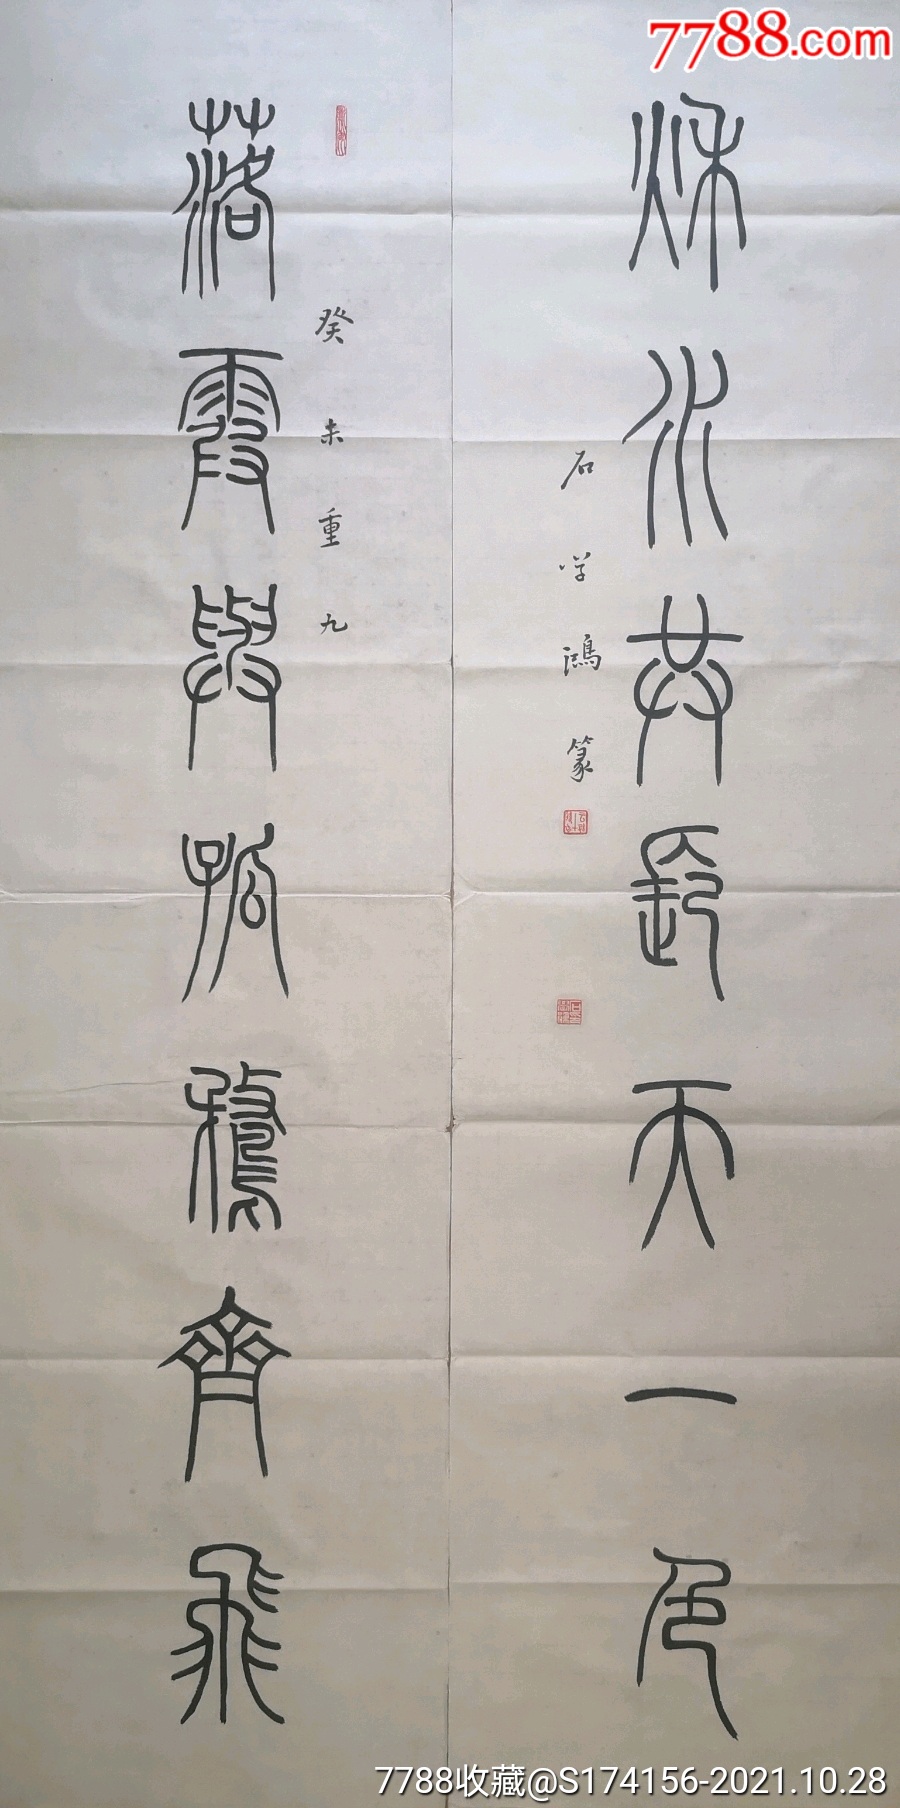 7788.com
落霞與孤鶩齊飛
癸未重九
秋水共長天一色
石学鴻篆
7788收藏@S174156-2021.10.28